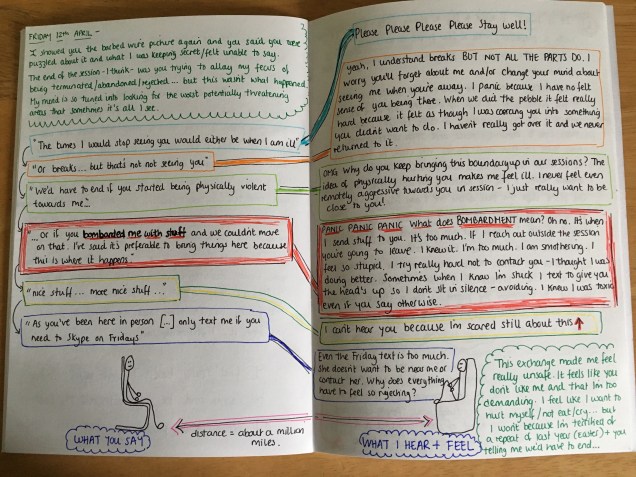 FRIDAY 12th APRIL -
I showed you the barbed wire picture again and you said you were
puzzled about it and what I was keeping secret/felt unable to say.
The end of the session - I think - was you trying to allay my fears of
being terminated/abandoned/rejected... but this wasnt what happened
My mind is so tuned into looking for the worst potentially threatening
areas that sometimes it's all I see.
"The times I would stop seeing you would either be when I am ill"
"Or breaks... but that's not not seeing you"
"We'd have to end if you started being physically violent
towards me"
"...or if you bombarded me with stuff and we couldn't move
on that. I've said it's preferable to bring things here because
this is where it happens."
"nice stuff... more nice stuff..."
"As you've been here in person [...] only text me if you
need to Skype on Fridays"
WHAT YOU SAY
distance = about a million
miles.
Please Please Please Please Stay well!
yeah, I understand breaks BUT NOT ALL THE PARTS DO. I
worry you'll forget about me and/or change your mind about
seeing me when you're away. I panic because I have no felt
sense of you being there. When we did the pebble it felt really
hard because it felt as though I was coercing you into something
you didnt want to do. I havent really got over it and we never
returned to it.
OMG Why do you keep bringing this boundary up in our sessions? The
idea of physically hurting you makes me feel ill. I never feel even
remotely aggressive towards you in session - I just really want to be
close to you!
PANIC PANIC PANIC What does BOMBARDMENT mean? Oh no. It's when
I send stuff to you. It's too much. If I reach out outside the session
you're going to leave. I knew it. I'm too much. I am smothering. I
feel so stupid. I try really hard not to contact you - I thought I was
doing better. Sometimes when I know I'm stuck I text to give you
the heads up so I don't sit in silence - avoiding. I knew I was toxic
even if you say otherwise.
I can't hear you because I'm scared still about this
Even the Friday text is too much.
She doesnt want to be near me or
contact her. Why does everything
have to feel so rejecting?
WHAT I HEAR + FEEL
This exchange made me feel
really unsafe. It feels like you
dont like me and that I'm too
demanding. I feel like I want to
hurt myself / not eat / cry... but I
wont because I'm terrified of
a repeat of last year (easter) + you
telling me we'd have to end...